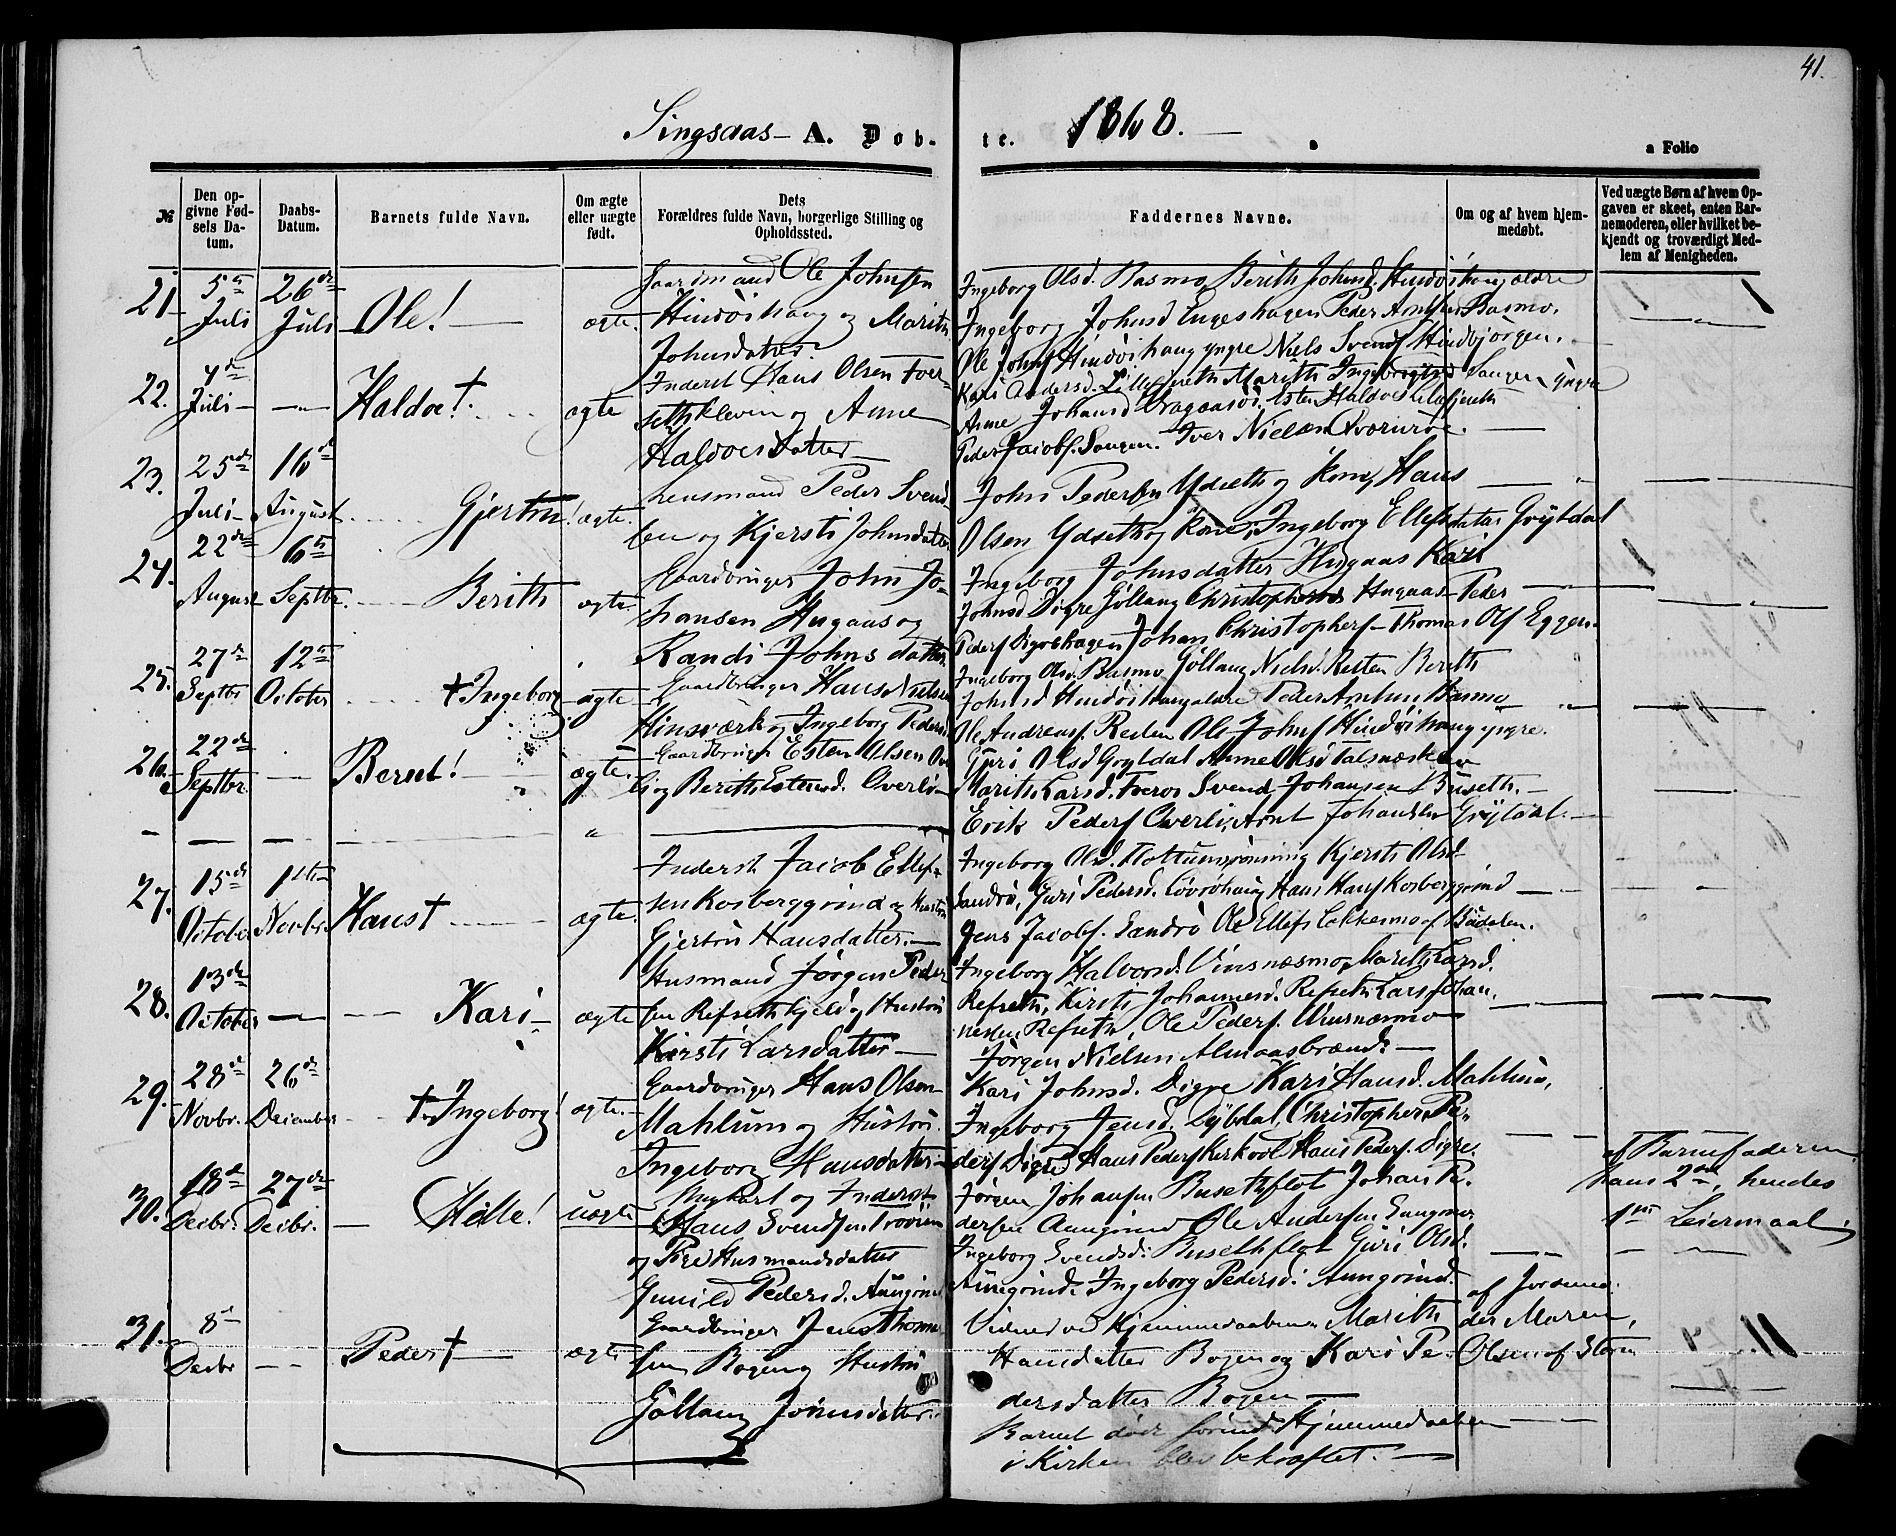 41.
Singsaas A. Døb-
te. 1868.
a Folio
№
Den op-
givne Fød-
sels Da-
tum.
Daabs-
Datum.
Barnets fulde Navn.
Om ægte
eller uægte
født.
Dets
Forældres fulde Navn, borgerlige Stilling og
Opholdssted.
Faddernes Navne.
Om og af hvem hjem-
medøbt.
Ved uægte Børn af hvem Op-
gaven er skeet, enten Bar-
nemoderen, eller hvilket be-
kjendt og troværdigt Med-
lem af Menigheden.
21
5te Juli
26de Juli
Ole!
ægte.
Gaardmand Ole Johnsen
Hindöihaug og Marith
Johnsdatter
Ingeborg Olsd. Basmo, Berith Johnsd. Hindöihaug ældre
Ingeborg Johnsd. Engeshagen Peder Arntsen Basmo.
Ole Johns. Hindöihaug yngre Niels Svends. Hindbjörgen.
22.
4de Juli
Haldoe†
ægte
Inderst Hans Olsen
og Anne
Haldoesdatter
Kari Andersd. Marith Ingebrigtsd. Yngre
Anne Johansd. Esten Haldoes.
Peder Jacobs. Iver Nielsen
23.
25de Juli
16de August
Gjertru!
ægte.
Lensmand Peder Svend-
sen og Kjersti Johnsdatter
John Pedersen Ydseth og Kone, Hans
Olsen Ydseth og Kone, Ingeborg Ellefsdatter Grytdal
24.
22de August
6te Septbr.
Berith
ægte.
Gaardbruger John Jo-
hansen Hugaas og
Randi Johnsdatter
Ingeborg Johnsdatter Hugaas Kari
Johnsd. Digre Göllaug Christophersd. Hugaas Peder
Peders. Digreshagen Johan Christophers. Thomas Ols. Eggen.
25.
27de Septbr
12te October
† Ingeborg
ægte
Gaardbruger Hans Nielsen
Hinsværk og Ingeborg Pedersd.
Ingeborg Olsd. Basmo Göllaug Nielsd. Resten Berith
Johnsd. Hindöihaug ældre Peder Arntsen Basmo
Ole Andreas. Resten Ole Johns. Hindöihaug yngre.
26.
22de Septbr.
Bernt!
ægte.
Gaardbruger Esten Olsen Ov-
li og Berith Estensd. Overli
Guri Olsd. Grytdal Anne Olsd.
Marith Larsd. Svend Johansen Buseth.
Erik Peders. Overli, Arnt Johansen Grytdal
27.
15de October
1ste Novbr.
Hans†
ægte.
Inderst Jacob Ellef-
sen Kosberggrind og Hustru
Gjertru Hansdatter.
Ingeborg Olsd. Kjersti Olsd.
Sandrö, Guri Pedersd. Hans Hans. Kosberggrind
Jens Jacobs. Sandrö Ole Ellefs. af Budalen.
28.
13de October
Kari
ægte
Husmand Jörgen Peder-
sen Refsethkjeld og Hustru
Kirsti Larsdatter
Ingeborg Halvorsd. Vinsnæsmo, Marith Larsd.
Refseth, Kirsti Johannesd. Refseth Lars Johan-
nesen Refseth, Ole Peders. Vinsnæsmo
Jörgen Nielsen Almaasbrænd
29.
28de Novbr.
26de December
† Ingeborg!
ægte.
Gaardbruger Hans Olsen
Mahlum og Hustru
Ingeborg Hansdatter
Kari Johnsd. Digre Kari Hansd. Mahlum,
Ingeborg Jensd. Dybdal, Christopher Pe-
ders. Digre Hans Peders. Kirkvold Hans Peders. Digre.
30.
18de Decbr.
27de Decbr.
Helle!
uægte
Ungkarl og Inderst
Hans Svendsen
og Pige Husmandsdatter
Gunild Pedersd. Aungrind
Jörgen Johansen Busethflot Johan Pe-
dersen Aungrind Ole Andersen
Ingeborg Svendsd. Busethflot Guri Olsd.
Aungrind. Ingeborg Pedersd. Aungrind.
af Barnefaderen
hans 2det, hendes
1ste Leiermaal.
31.
8de Decbr
Peder†
ægte
Gaardbruger Jens Thom-
sen Bogen og Hustru
Göllaug Jensdatter.
Vidner ved Hjemmedaaben Marith
Hansdatter Bogen og Kari Pe-
dersdatter Bogen
Barnet døde forind Hjemmedaaben
i Kirken blev bekræftet.
af Jordmo-
der Maren
Olsen af Støren